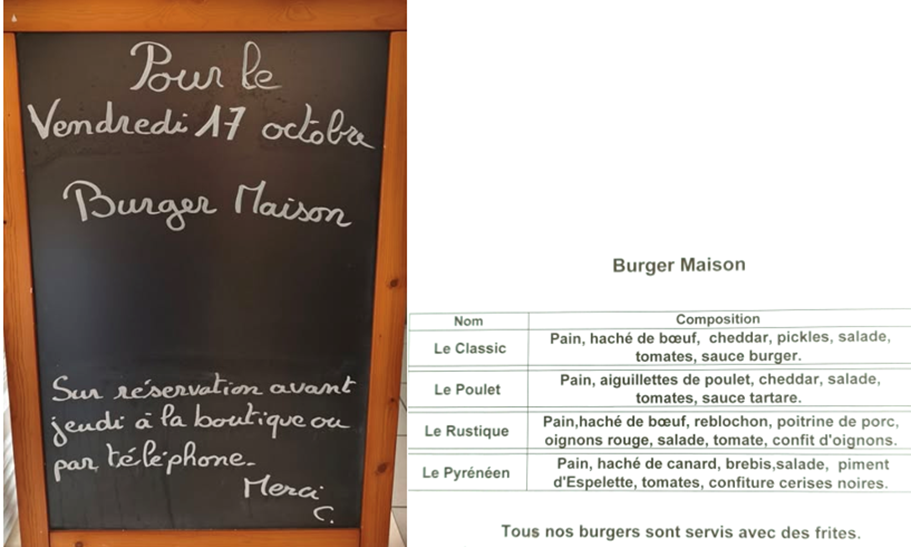 Pour le
Vendredi 17 octobre
Burger Maison
Sur réservation avant
jeudi à la boutique ou
par téléphone.
Merci
C.
Burger Maison
Nom Composition
Le Classic Pain, haché de bœuf, cheddar, pickles, salade,
tomates, sauce burger.
Le Poulet Pain, aiguillettes de poulet, cheddar, salade,
tomates, sauce tartare.
Le Rustique Pain,haché de bœuf, reblochon, poitrine de porc,
oignons rouge, salade, tomate, confit d'oignons.
Le Pyrénéen Pain, haché de canard, brebis,salade, piment
d'Espelette, tomates, confiture cerises noires.
Tous nos burgers sont servis avec des frites.